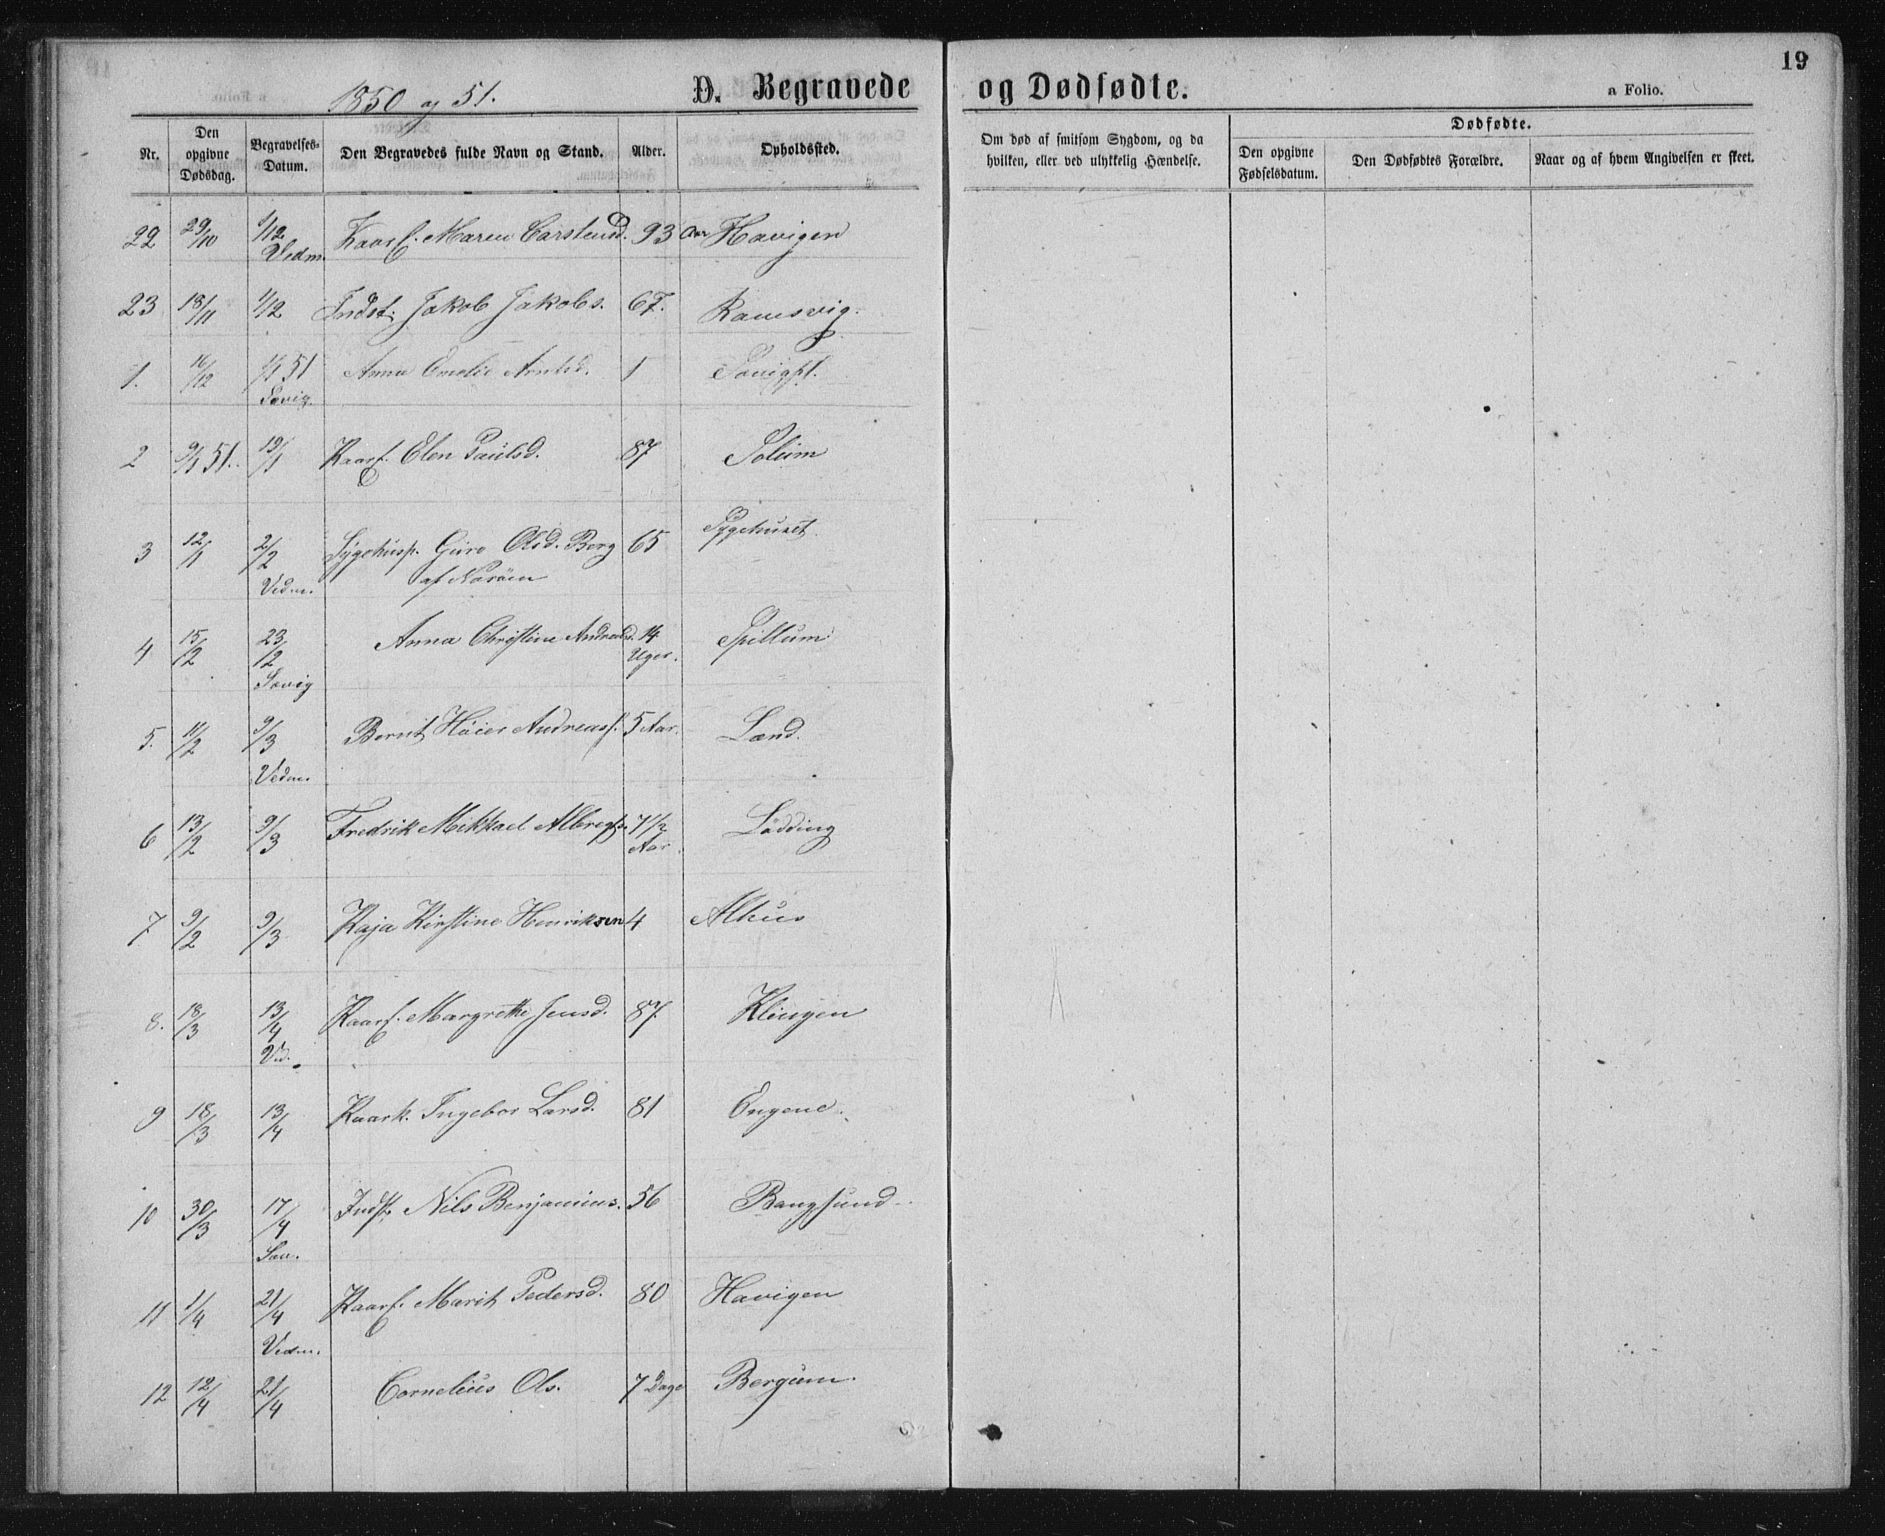 1850 og 51.
D. Begravede og Dødfødte.
19
a Folio.
Nr.
Den opgivne Dødsdag.
Begravelses-Datum.
Den Begravedes fulde Navn og Stand.
Alder.
Opholdssted.
Om død af smitsom Sygdom, og da hvilken, eller ved ulykkelig Hændelse.
Dødfødte.
Den opgivne Fødselsdatum.
Den Dødfødtes Forældre.
Naar og af hvem Angivelsen er skeet.
22 29/10 1/12 Kaarf. Maren Carstensd. 93 Aar Havigen
Vedm.
23 18/11 1/12 Indst. Jakob Jakobs. 67. Ramsvig.
1. 16/12 1/1 51 Anna Emelie Arntsd. 1
Savig.
2 9/1 51. 19/1 Kaarf. Elen Paulsd. 87 Solum
3 12/1 2/2 Sygehusp. Guro Olsd. Berg 65 Sygehuset.
Vedm. af Narøen
4 15/2 23/2 Anna Christine Andreasd. 14 Spillum
Uger.
Savig
5. 11/2 9/3 Bernt Høier Andreasf. 5 Aar. Land.
Vedm.
6 13/2 9/3 Fredrik Mikkael Albregts. 7 1/2 Lødding
Aar.
7 9/2 9/3 Kaja Kirstine Henriksen 4 Alhus
8. 18/3 13/4 Kaarf. Margrethe Jensd. 87. Klingen
Ved.
9 18/3 13/4 Kaark. Ingebor Larsd. 81 Engene.
10 30/3 17/4 Indst. Nils Benjamins. 56 Bangsund
Sav.
11 1/4 21/4 Kaarf. Marit Pedersd. 80 Havigen
Vedm.
12 12/4 21/4 Cornelius Ols. 7 Dage Bergum.